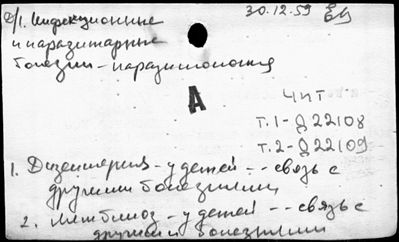 с/1. Инфекционные
30.12.59
и паразитарные
болезни – паразитология
А
Чит
т.1-Д 22108
т.2-Д 22109
1. Дизентерия – у детей – – связь с
другими болезнями
2. Лямблиоз – у детей – – связь с
другими болезнями